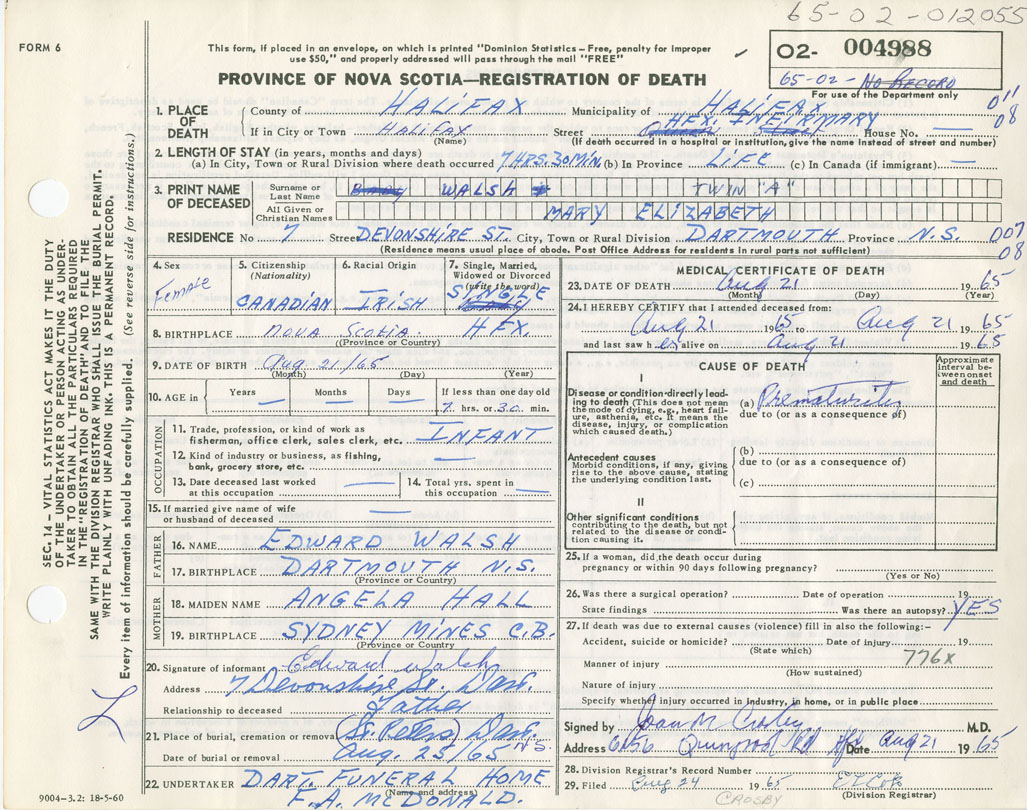 65-02-012055
FORM 6
This form, if placed in an envelope, on which is printed "Dominion Statistics – Free, penalty for improper
use $50," and properly addressed will pass through the mail "FREE"
02- 004988
65-02- No Record
For use of the Department only
PROVINCE OF NOVA SCOTIA—REGISTRATION OF DEATH
1. PLACE OF DEATH
County of HALIFAX Municipality of HALIFAX 011
If in City or Town HALIFAX (Name) Street HFX. INFIRMARY House No. — 08
(If death occurred in a hospital or institution, give the name instead of street and number)
2. LENGTH OF STAY (in years, months and days)
(a) In City, Town or Rural Division where death occurred 7 HRS. 30 MIN (b) In Province LIFE (c) In Canada (if immigrant) —
3. PRINT NAME OF DECEASED
Surname or Last Name WALSH TWIN "A"
All Given or Christian Names MARY ELIZABETH
RESIDENCE No 7 Street DEVONSHIRE ST. City, Town or Rural Division DARTMOUTH Province N.S. 007
08
(Residence means usual place of abode. Post Office Address for residents in rural parts not sufficient)
4. Sex Female
5. Citizenship (Nationality) CANADIAN
6. Racial Origin IRISH
7. Single, Married, Widowed or Divorced (write the word) SINGLE
8. BIRTHPLACE NOVA SCOTIA. HFX.
(Province or Country)
9. DATE OF BIRTH Aug 21/65
(Month) (Day) (Year)
10. AGE in Years — Months — Days — If less than one day old
7 hrs. or 30 min.
OCCUPATION
11. Trade, profession, or kind of work as
fisherman, office clerk, sales clerk, etc. INFANT
12. Kind of industry or business, as fishing,
bank, grocery store, etc. —
13. Date deceased last worked
at this occupation —
14. Total yrs. spent in
this occupation —
15. If married give name of wife
or husband of deceased —
FATHER
16. NAME EDWARD WALSH
17. BIRTHPLACE DARTMOUTH N.S.
(Province or Country)
MOTHER
18. MAIDEN NAME ANGELA HALL
19. BIRTHPLACE SYDNEY MINES C.B.
(Province or Country)
20. Signature of informant Edward Walsh
Address 7 Devonshire St. Dart.
Relationship to deceased Father
21. Place of burial, cremation or removal (St. Peters) Dart. N.S.
Date of burial or removal Aug. 23/65
22. UNDERTAKER DART. FUNERAL HOME
(Name and address)
F.A. McDONALD.
MEDICAL CERTIFICATE OF DEATH
23. DATE OF DEATH Aug 21 1965
(Month) (Day) (Year)
24. I HEREBY CERTIFY that I attended deceased from:
Aug 21 1965 to Aug 21 1965
and last saw her alive on Aug 21 1965
CAUSE OF DEATH
Approximate interval between onset and death
I
Disease or condition directly leading to death (This does not mean the mode of dying, e.g., heart failure, asthenia, etc. It means the disease, injury, or complication which caused death.)
(a) Prematurity
due to (or as a consequence of)
Antecedent causes
Morbid conditions, if any, giving rise to the above cause, stating the underlying condition last.
(b)
due to (or as a consequence of)
(c)
II
Other significant conditions
contributing to the death, but not related to the disease or condition causing it.
25. If a woman, did the death occur during
pregnancy or within 90 days following pregnancy?
(Yes or No)
26. Was there a surgical operation? Date of operation 19
State findings Was there an autopsy? YES
27. If death was due to external causes (violence) fill in also the following:-
Accident, suicide or homicide? Date of injury 19
(State which) 776x
Manner of injury
(How sustained)
Nature of injury
Specify whether injury occurred in Industry, in home, or in public place
Signed by Joan M Crosby M.D.
Address 6156 Quinpool Rd Hfx Date Aug 21 1965
28. Division Registrar's Record Number
29. Filed Aug 24 1965
CROSBY
(Division Registrar)
SEC. 14 – VITAL STATISTICS ACT MAKES IT THE DUTY
OF THE UNDERTAKER OR PERSON ACTING AS UNDER-
TAKER TO OBTAIN ALL THE PARTICULARS REQUIRED
IN THE "REGISTRATION OF DEATH" AND TO FILE THE
SAME WITH THE DIVISION REGISTRAR WHO SHALL ISSUE THE BURIAL PERMIT.
WRITE PLAINLY WITH UNFADING INK. THIS IS A PERMANENT RECORD.
Every item of information should be carefully supplied. (See reverse side for instructions.)
9004–3.2: 18-5-60